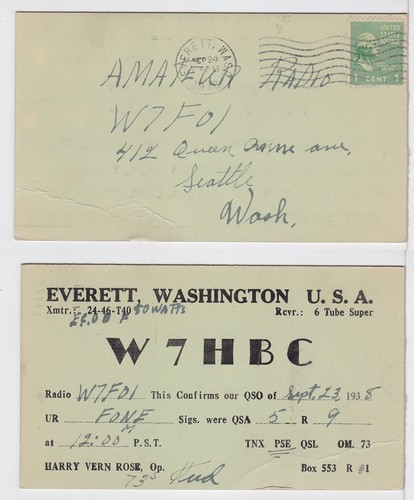 EVERETT, WASH.
SEP 24
PM
UNITED STATES
POSTAGE
1 CENT 1
AMATEUR RADIO
W7FOI
412 Queen Anne ave,
Seattle
Wash.
EVERETT, WASHINGTON U. S. A.
Xmtr.: 24-46-T40 50 WATTS Rcvr.: 6 Tube Super
W 7 H B C
Radio W7FOI This Confirms our QSO of Sept. 23 1938
UR FONE Sigs. were QSA 5 R 9
at 12:00 M P.S.T. TNX PSE QSL OM. 73
HARRY VERN ROSE, Op. Box 553 R #1
73s